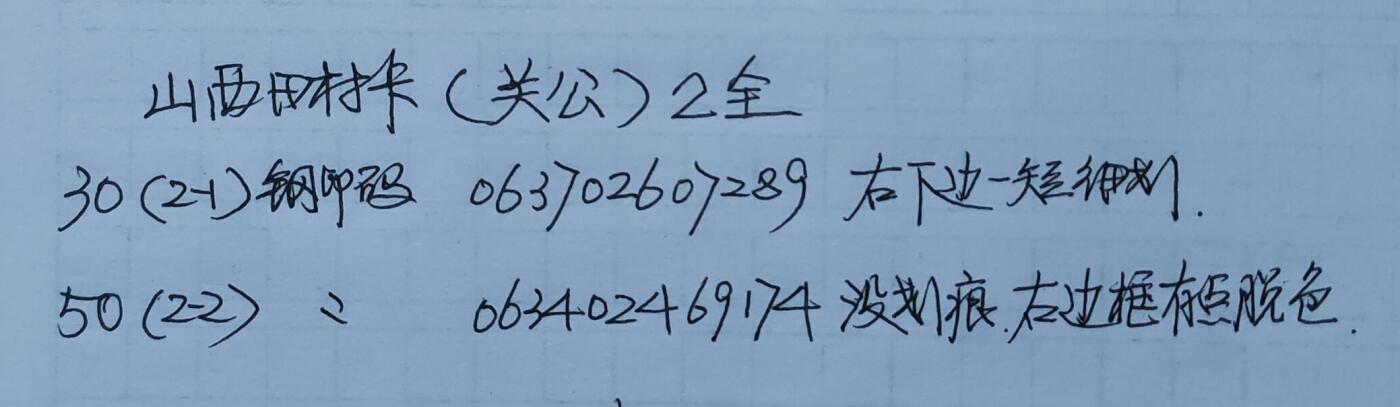 山西田村卡（关公）2全
30(2-1)钢印码 063702607289 右下边一短细划.
50(2-2) 〃 063402469174 没划痕.右边框有点脱色.